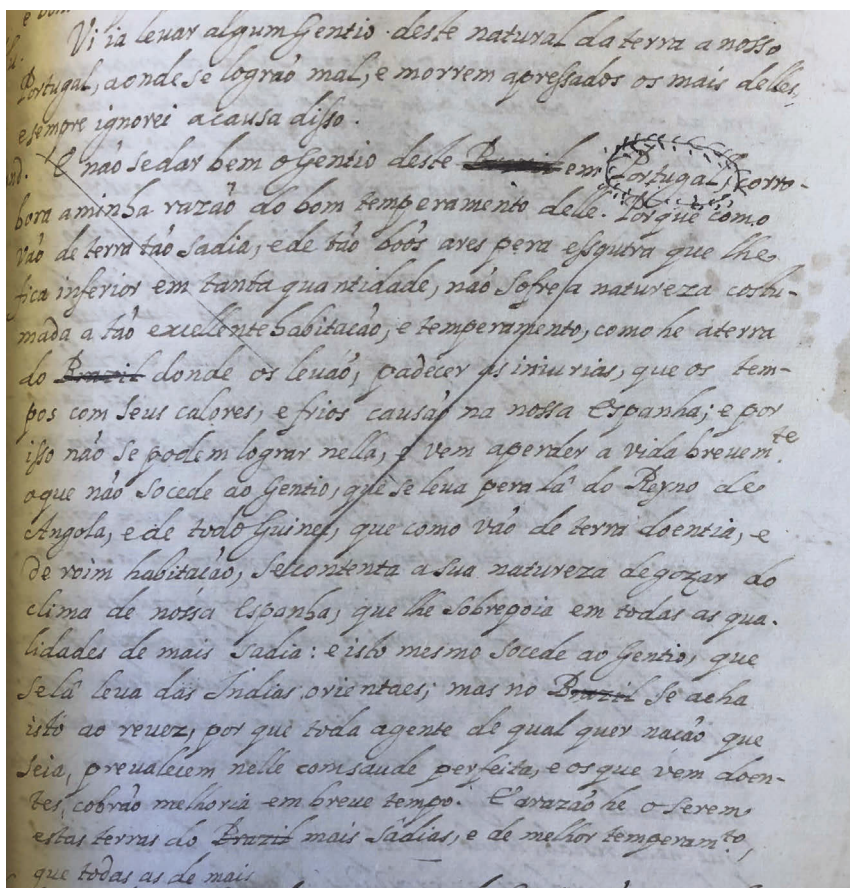 Vi ia levar algum Gentio deste natural da terra a nosso
Portugal, aonde se lograõ mal, e morrem apressados os mais delles,
e sempre ignorei a causa disso.
E naõ se dar bem o Gentio deste Brazil em Portugal, corro-
bora a minha razaõ do bom temperamento delle. Porque como
vaõ de terra taõ sadia, e de taõ boõs ares pera essoutra que lhe
fica inferior em tanta quantidade, naõ sofre a natureza costu-
mada a taõ excellente habitacaõ, e temperamento, como he a terra
do Brazil donde os levaõ, padecer as iniurias, que os tem-
pos com seus calores, e frios causaõ na nossa Espanha; e por
isso naõ se podem lograr nella, e vem a perder a vida brevem.te
o que naõ socede ao Gentio, que se leva pera lá do Reyno de
Angola, e de todo Guine, que como vaõ de terra doentia, e
de roim habitacaõ, se contenta a sua natureza de gozar do
clima de nossa Espanha, que lhe sobrepoia em todas as qua-
lidades de mais sadia: e isto mesmo socede ao Gentio, que
se lá leva das Indias orientaes; mas no Brazil se acha
isto ao revez, por que toda a gente de qual quer nacaõ que
seia, prevalecem nelle com saude perfeita, e os que vem doen-
tes, cobraõ melhoria em breve tempo. E a razaõ he o serem
estas terras do Brazil mais sádias, e de melhor temperam.to,
que todas as de mais